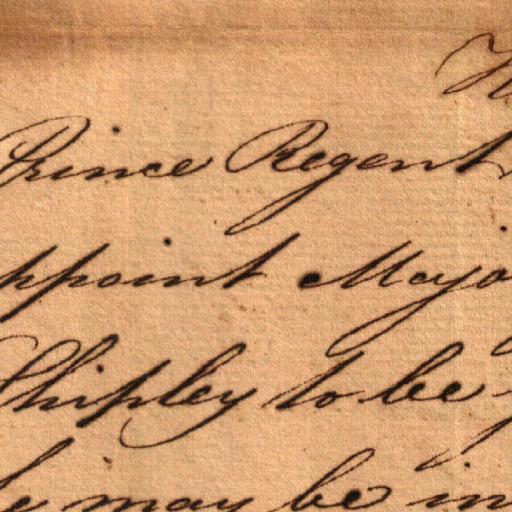 Prince Regent
ppoint Majo
Shipley to be
may be in